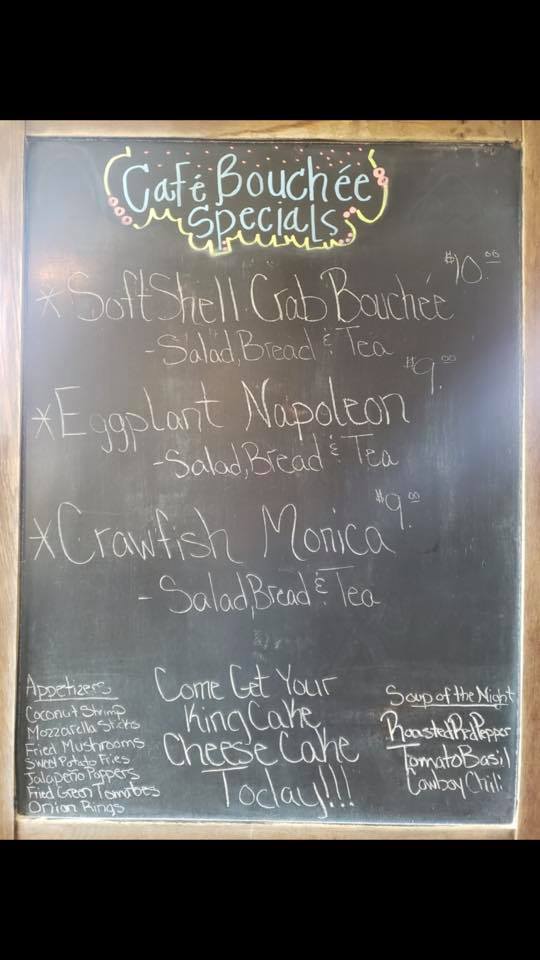 Café Bouchée
Specials
* SoftShell Crab Bouchée $10.00
- Salad, Bread & Tea
* Eggplant Napoleon $9.00
- Salad, Bread & Tea
* Crawfish Monica $9.00
- Salad, Bread & Tea
Appetizers
Coconut Shrimp
Mozzarella Sticks
Fried Mushrooms
Sweet Potato Fries
Jalapeño Poppers
Fried Green Tomatoes
Onion Rings
Come Get Your
King Cake
Cheese Cake
Today!!!
Soup of the Night
Roasted Red Pepper
Tomato Basil
Cowboy Chili